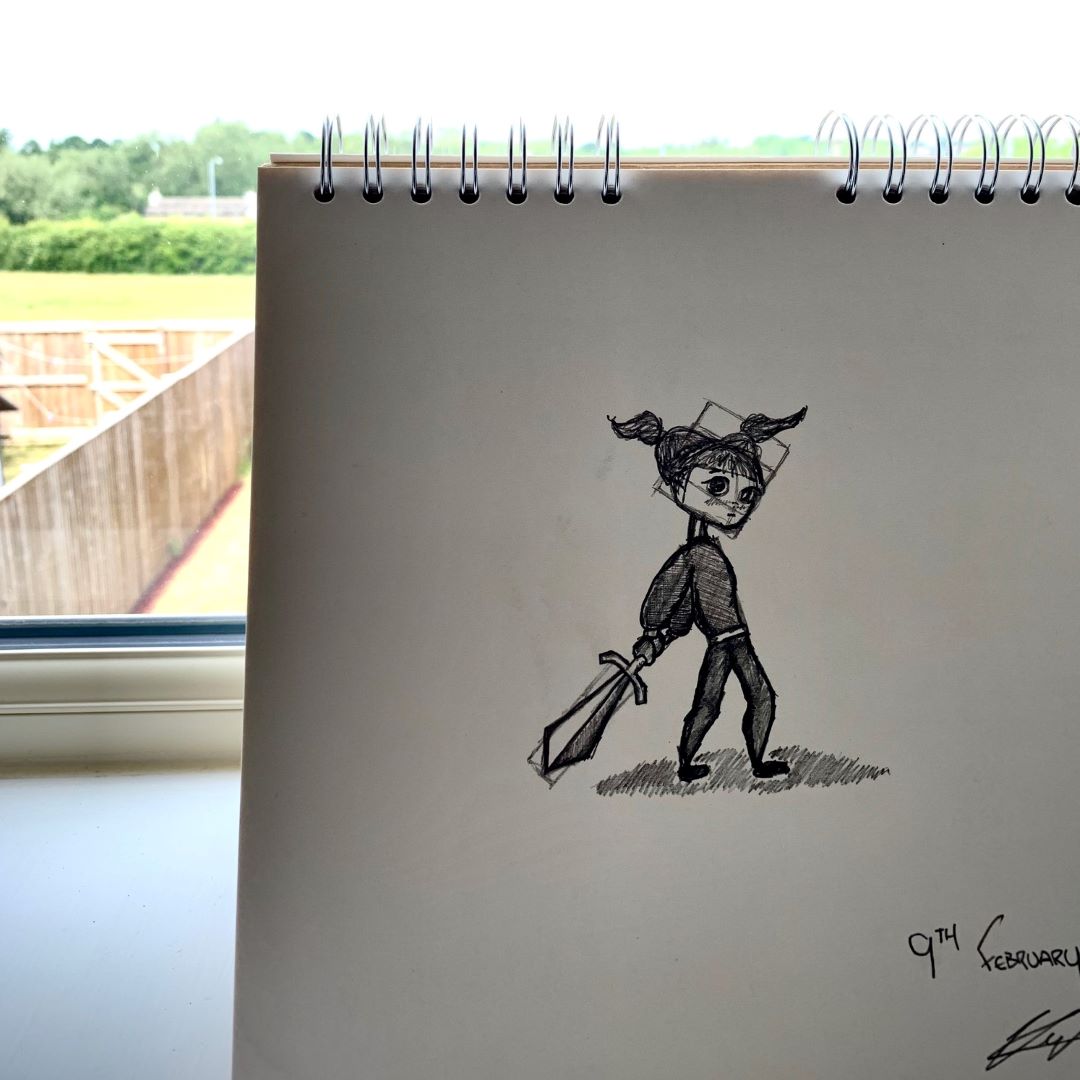 9TH FEBRUARY